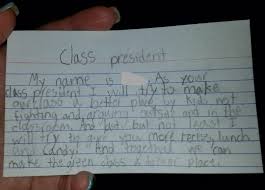 Class president
My name is . As your
class president I will try to make
our class a better place by kids not
fighting and arguing outside and in the
classroom. And last but not least I
will try to give you more recess, lunch
and candy! And together we can
make the green class a better place.